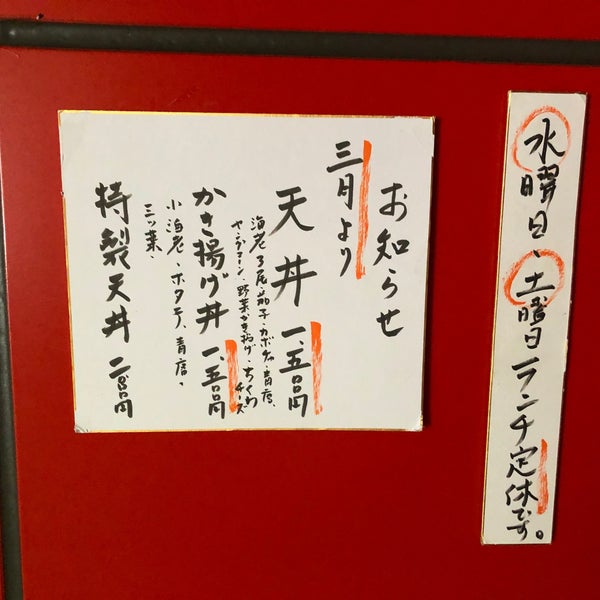 お知らせ
三月より
天丼 一、五〇〇円
海老3尾・茄子・カボチャ・青唐、
ヤングコーン・野菜かき揚げ・ちくわチーズ
かき揚げ丼 一、五〇〇円
小海老、ホタテ、青唐、
三ッ葉、
特製天丼 二、〇〇〇円
水曜日、土曜日ランチ定休です。